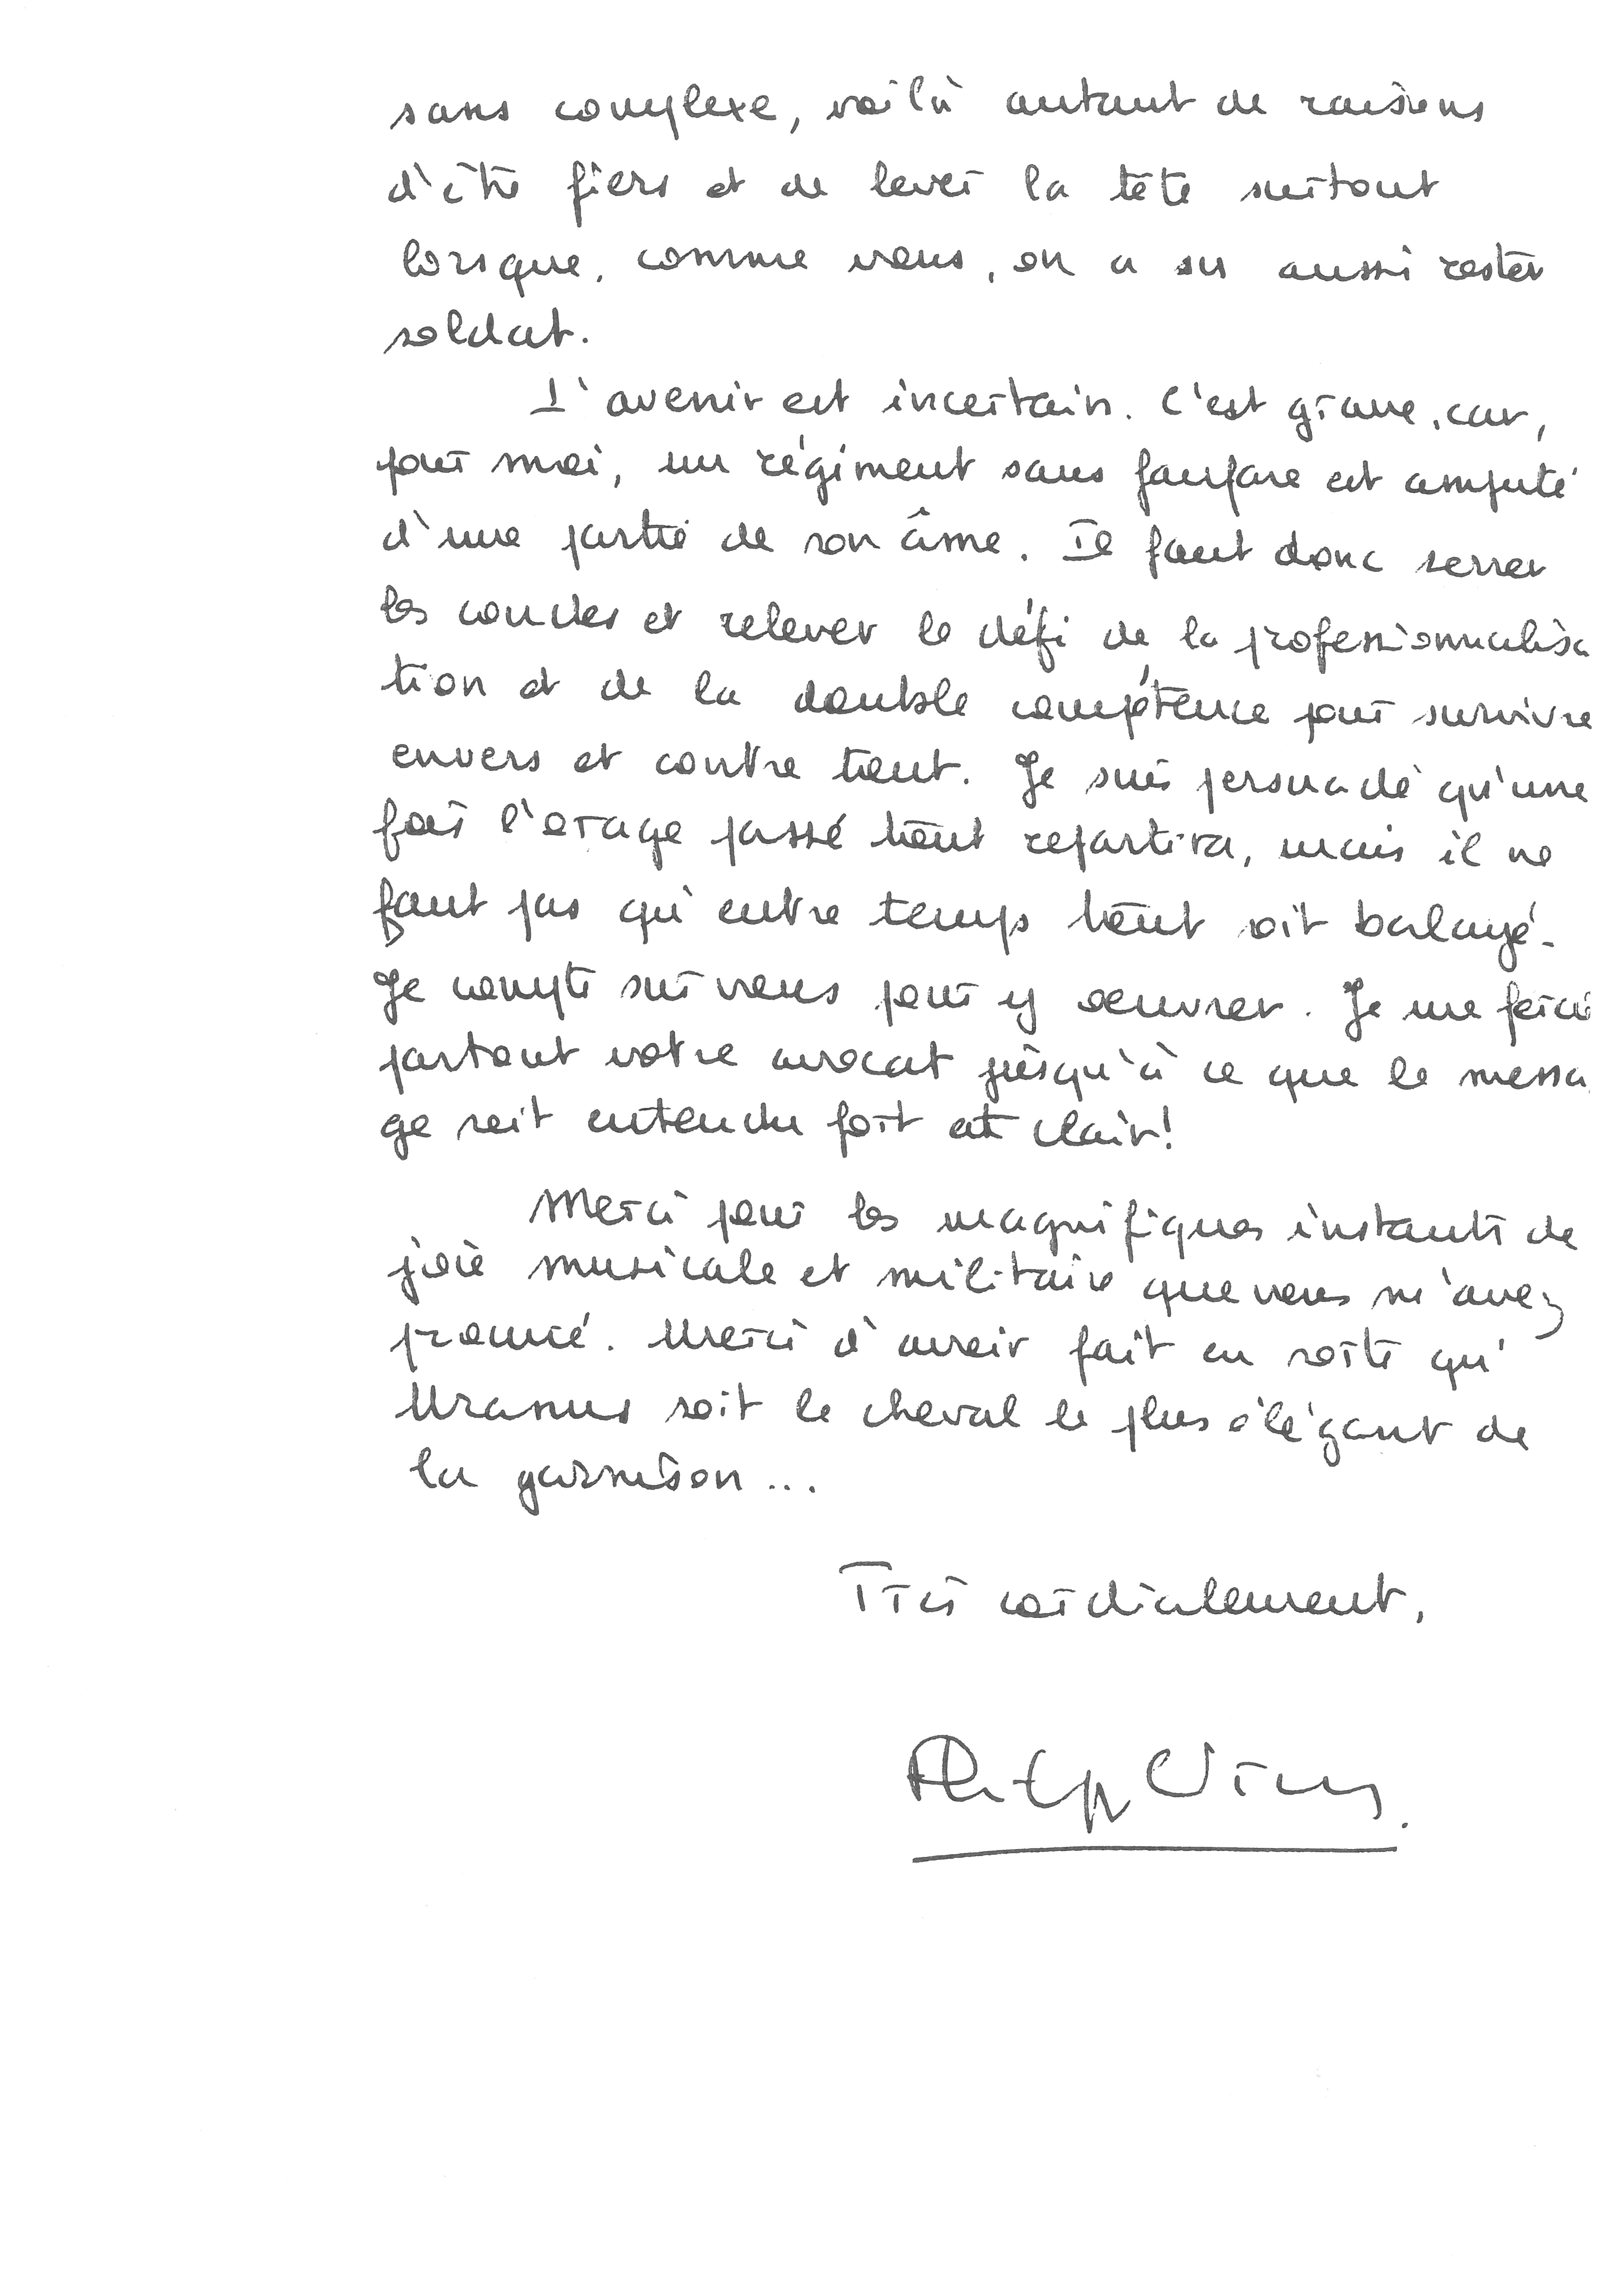 sans complexe, voilà autant de raisons
d'être fiers et de lever la tête surtout
lorsque, comme vous, on a su aussi rester
soldat.
L'avenir est incertain. C'est grave, car,
pour moi, un régiment sans fanfare est amputé
d'une partie de son âme. Il faut donc serrer
les coudes et relever le défi de la professionnalisa
tion et de la double compétence pour survivre
envers et contre tout. Je suis persuadé qu'une
fois l'orage passé tout repartira, mais il ne
faut pas qu'entre temps tout soit balayé.
Je compte sur vous pour y oeuvrer. Je me ferai
partout votre avocat jusqu'à ce que le messa
ge soit entendu fort et clair!
Merci pour les magnifiques instants de
joie musicale et militaire que vous m'avez
procuré. Merci d'avoir fait en sorte qu'
Uranus soit le cheval le plus élégant de
la garnison...
Très cordialement,